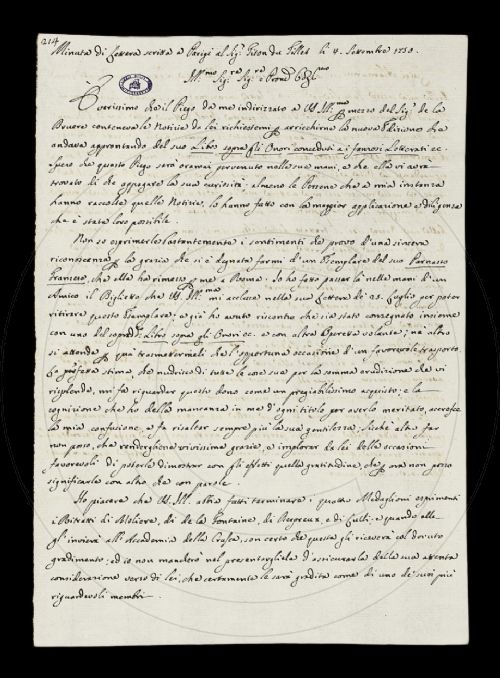 214
Minuta di Lettera scritta a Parigi al Sig.r Titon du Tillet li 4. Settembre 1730.
Ill.mo Sig.re Sig.re e Pron.
È verissimo che il Piego da me indirizzato a V.S. Ill.ma p mezzo del Sig.r de la
Bruere conteneva le Notizie da lei richiestemi p arricchirne la nuova Edizione che
andava apprestando del suo Libro sopra gli Onori conceduti a i famosi Letterati ec.
Spero che questo Piego sarà oramai pervenuto nelle sue mani, e che ella vi avrà
trovato di che appagare la sua curiosità; almeno le Persone che a mia instanza
hanno raccolte quelle Notizie, lo hanno fatto con la maggior applicazione e diligenza
che è stata loro possibile.
Non so esprimerle bastantemente i sentimenti che provo d'una sincera
riconoscenza p la grazia che si è degnata farmi d'un Esemplare del suo Parnasso
Francese, che ella ha rimesso p me a Roma. Io ho fatto passar là nelle mani d'un
Amico il Biglietto che V.S. Ill.ma mi accluse nella sua Lettera de' 23. Luglio per poter
ritirare questo Esemplare; e già ho avuto riscontro che sia stato consegnato insieme
con uno del sopradº Libro sopra gli Onori ec. e con altra Operetta volante; nè altro
si attende p quà trasmettermeli che l'opportuna occasione d'un favorevole trasporto.
La perfetta stima, che nudrisco di tutte le cose sue per la somma erudizione che vi
risplende, mi fa riguardar questo dono come un pregiabilissimo acquisto; e la
cognizione che ho della mancanza in me d'ogni titolo per averlo meritato, accresce
la mia confusione, e fa risaltar sempre più la sua gentilezza; sicchè altro far
non posso, che rendergliene vivissime grazie, e implorar da lei delle occasioni
favorevoli di poterle dimostrar con gli effetti quella gratitudine, che p ora non posso
significarle con altro che con parole.
Ho piacere che V.S. Ill. abbia fatti terminare i quattro Medaglioni esprimenti
i Ritratti di Moliere, di de la Fontaine, di Depreux, e di Lulli; e quando ella
gl'invierà all'Accademia della Crusca, son certo che questa gli riceverà col dovuto
gradimento; ed io non mancherò nel presentargliela d'assicurarla della sua attenta
considerazione verso di lei, che certamente le sarà gradita come di uno de' suoi più
riguardevoli membri.